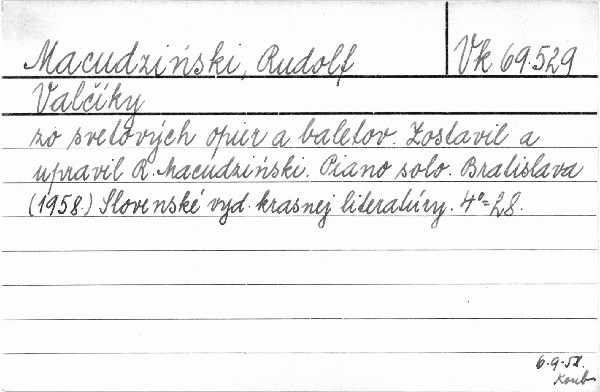 Macudziński, Rudolf Vk 69.529
Valčíky
zo svetových opier a baletov. Zostavil a
upravil R. Macudziński. Piano solo. Bratislava
(1958.) Slovenské vyd. krasnej literatúry. 4°=28.
6.9.58.
Koub